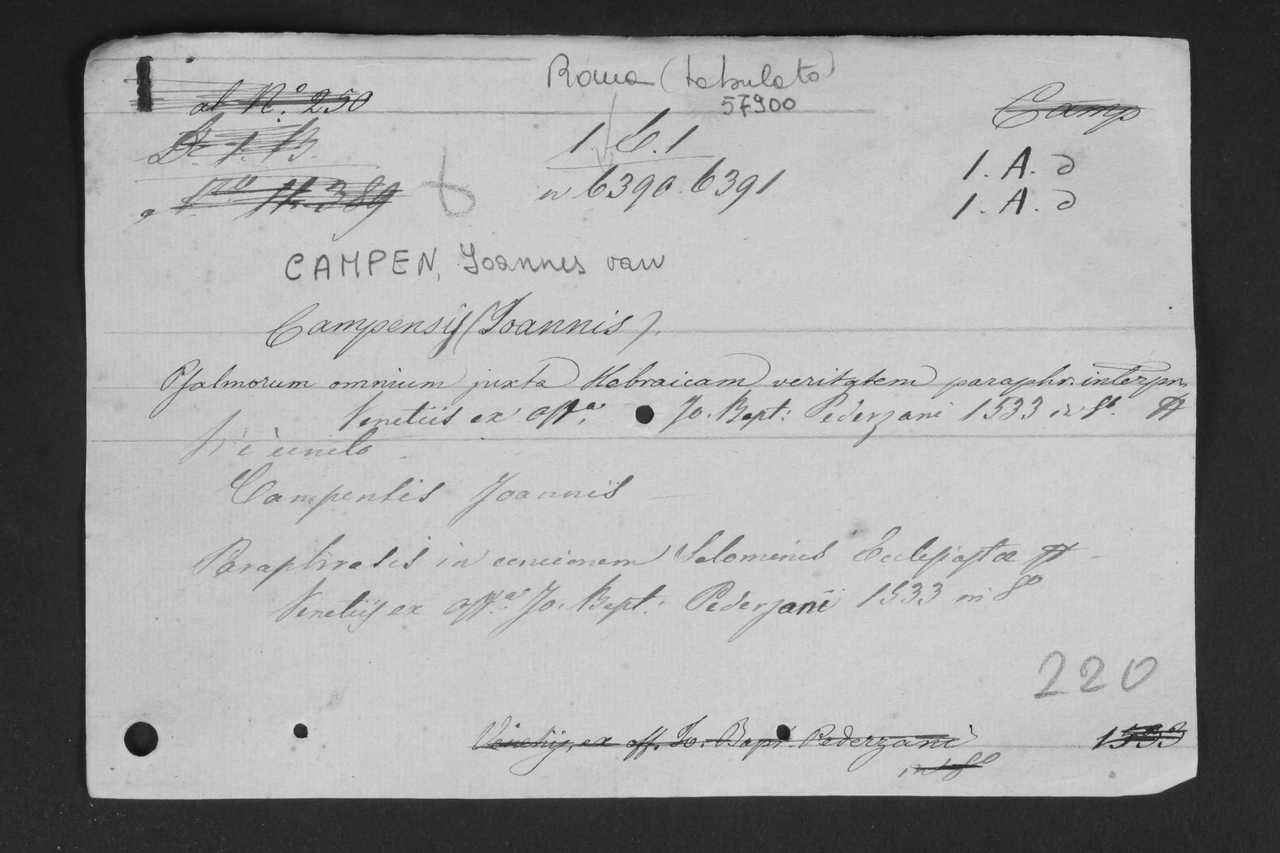 Roma (tabulato)
57900
al N.o 250
Camp
1. B.
1. C. 1
1. A. d
11. 389
n 6390. 6391
1. A. d
CAMPEN, Joannes van
Campensij (Joannis).
Psalmorum omnium juxta Hebraicam veritatem paraphr. interpr.
Venetiis ex off.a Jo. Bapt: Pederzani 1533 in 8o
Vi è unito
Campensis Joannis
Paraphrasis in concionem Salomonis Ecclesiastæ
Venetiis ex off.a Jo. Bapt: Pederzani 1533 in 8o
220
Venetiis, ex off. Jo. Bapt. Pederzani 1533
in 8o